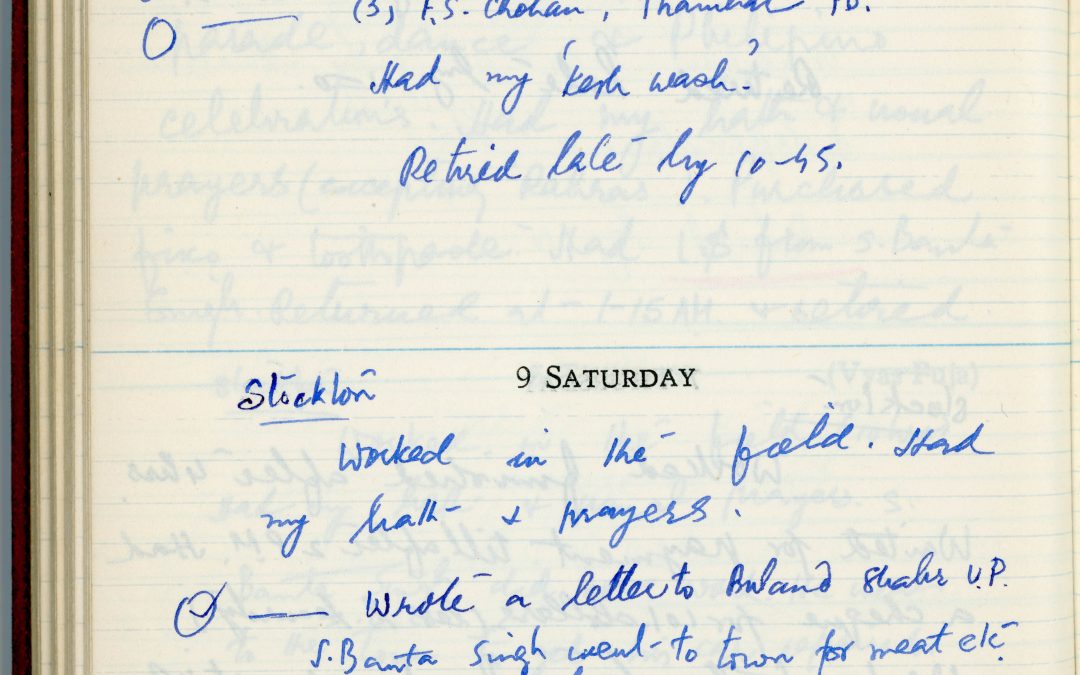 (3) F.S. Chohan,
Had my 'Kesh wash'.
Retired late by 10-45.
9 SATURDAY
Stockton
Worked in the field. Had
my bath & prayers.
Wrote a letter to Buland Shahr U.P.
S. Banta Singh went to town for meat etc